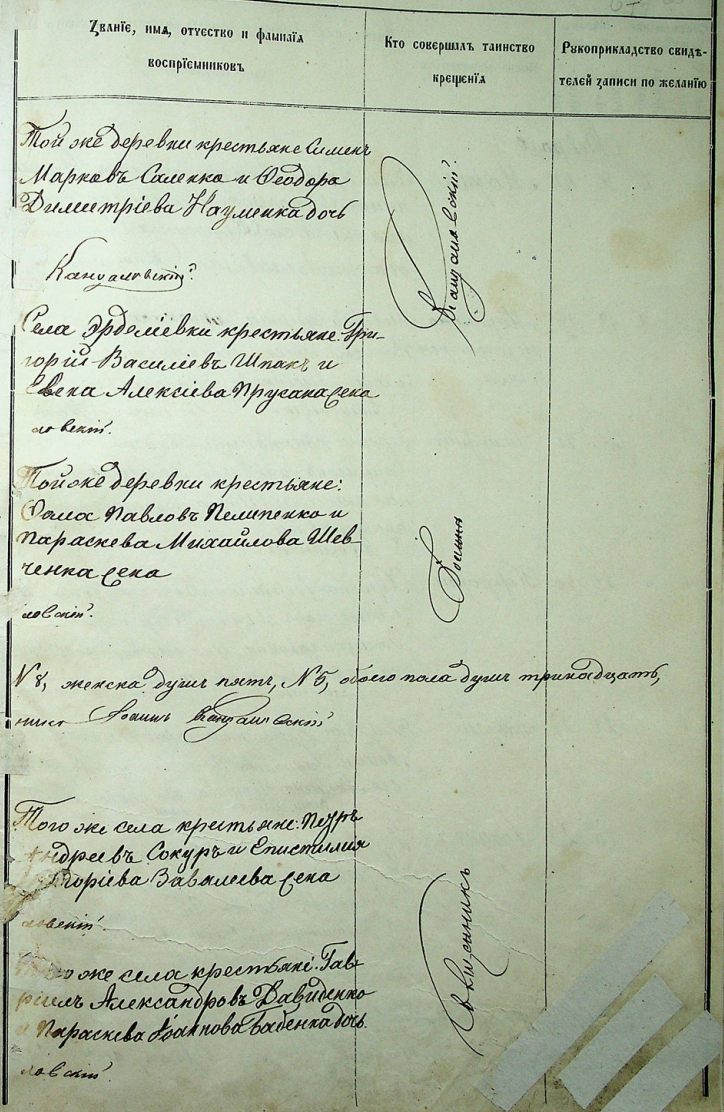 Званіе, имя, отчество и фамилія
воспріемниковъ
Кто совершалъ таинство
крещенія
Рукоприкладство свидѣ-
телей записи по желанію
Той же деревни крестьяне Сименъ
Марковъ Саленко и Ѳеодора
Димитріева Науменка дочь
Кануаловскій
Села Эрделіевки крестьяне: Гри-
горій Василіевъ Шпакъ и
Алексіева Прусака
ловскій.
Той же деревни крестьяне:
Ѳома Павловъ Пелипенко и
Параскева Михайлова Шев-
ченка
ловскій.
N 8, женска душъ пять, N 5, обоего пола душъ тринадцать,
Іоаннъ
Того же села крестьяне: Петръ
Андреевъ Сокуръ и Епистимія
Григоріева Завалеева
ловскій.
же села крестьяне: Гав-
ріилъ Александровъ Давиденко
и Параскева Іоаннова Бабенка дочь.
ловскій